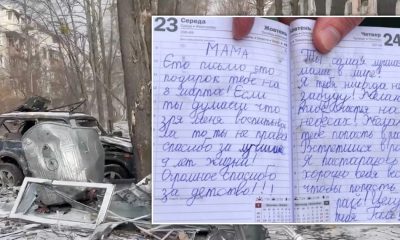 23
Середа
МАМА
Это письмо это
подарок тебе на
8 марта! Если
ты думаеш что
зря меня воспитывала
За то ты не права
спасибо за лучшие
9 лет жизни!
Огромное спасибо
за детство!!!
24
Ты самая лучшая
мама в мире!
Я тебя никогда не
забуду!
небесах!
тебе попасть в рай!
Встретимся в раю
Я постараюсь
хорошо себя вести
чтобы попасть
в рай!